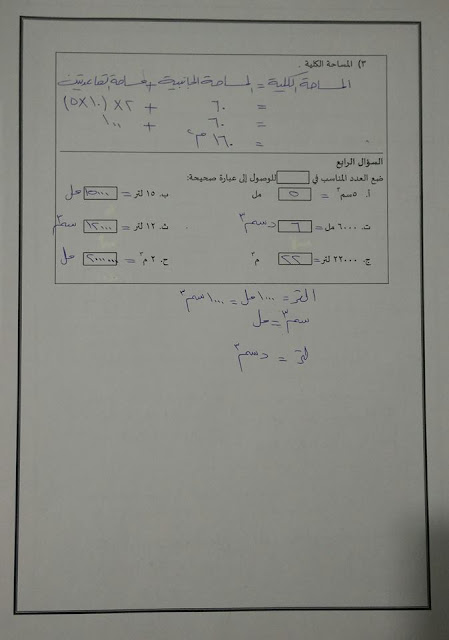 ٣) المساحة الكلية .
المساحة الكلية = المساحة الجانبية + مساحة القاعدتين
= ٦٠ + ٢ × (١٠ × ٥)
= ٦٠ + ١٠٠
= ١٦٠ م٢
السؤال الرابع
ضع العدد المناسب في للوصول إلى عبارة صحيحة:
أ. ٥سم٣ = ٥ مل ب. ١٥ لتر = ١٥٠٠٠ مل
ت. ٦٠٠٠ مل = ٦ دسم٣ ث. ١٢ لتر = ١٢٠٠٠ سم٣
ج. ٢٢٠٠٠ لتر = ٢٢ م٣ ح. ٢ م٣ = ٢٠٠٠٠٠٠ مل
التر = ١٠٠٠ مل = ١٠٠٠ سم٣
سم٣ = مل
لتر = دسم٣